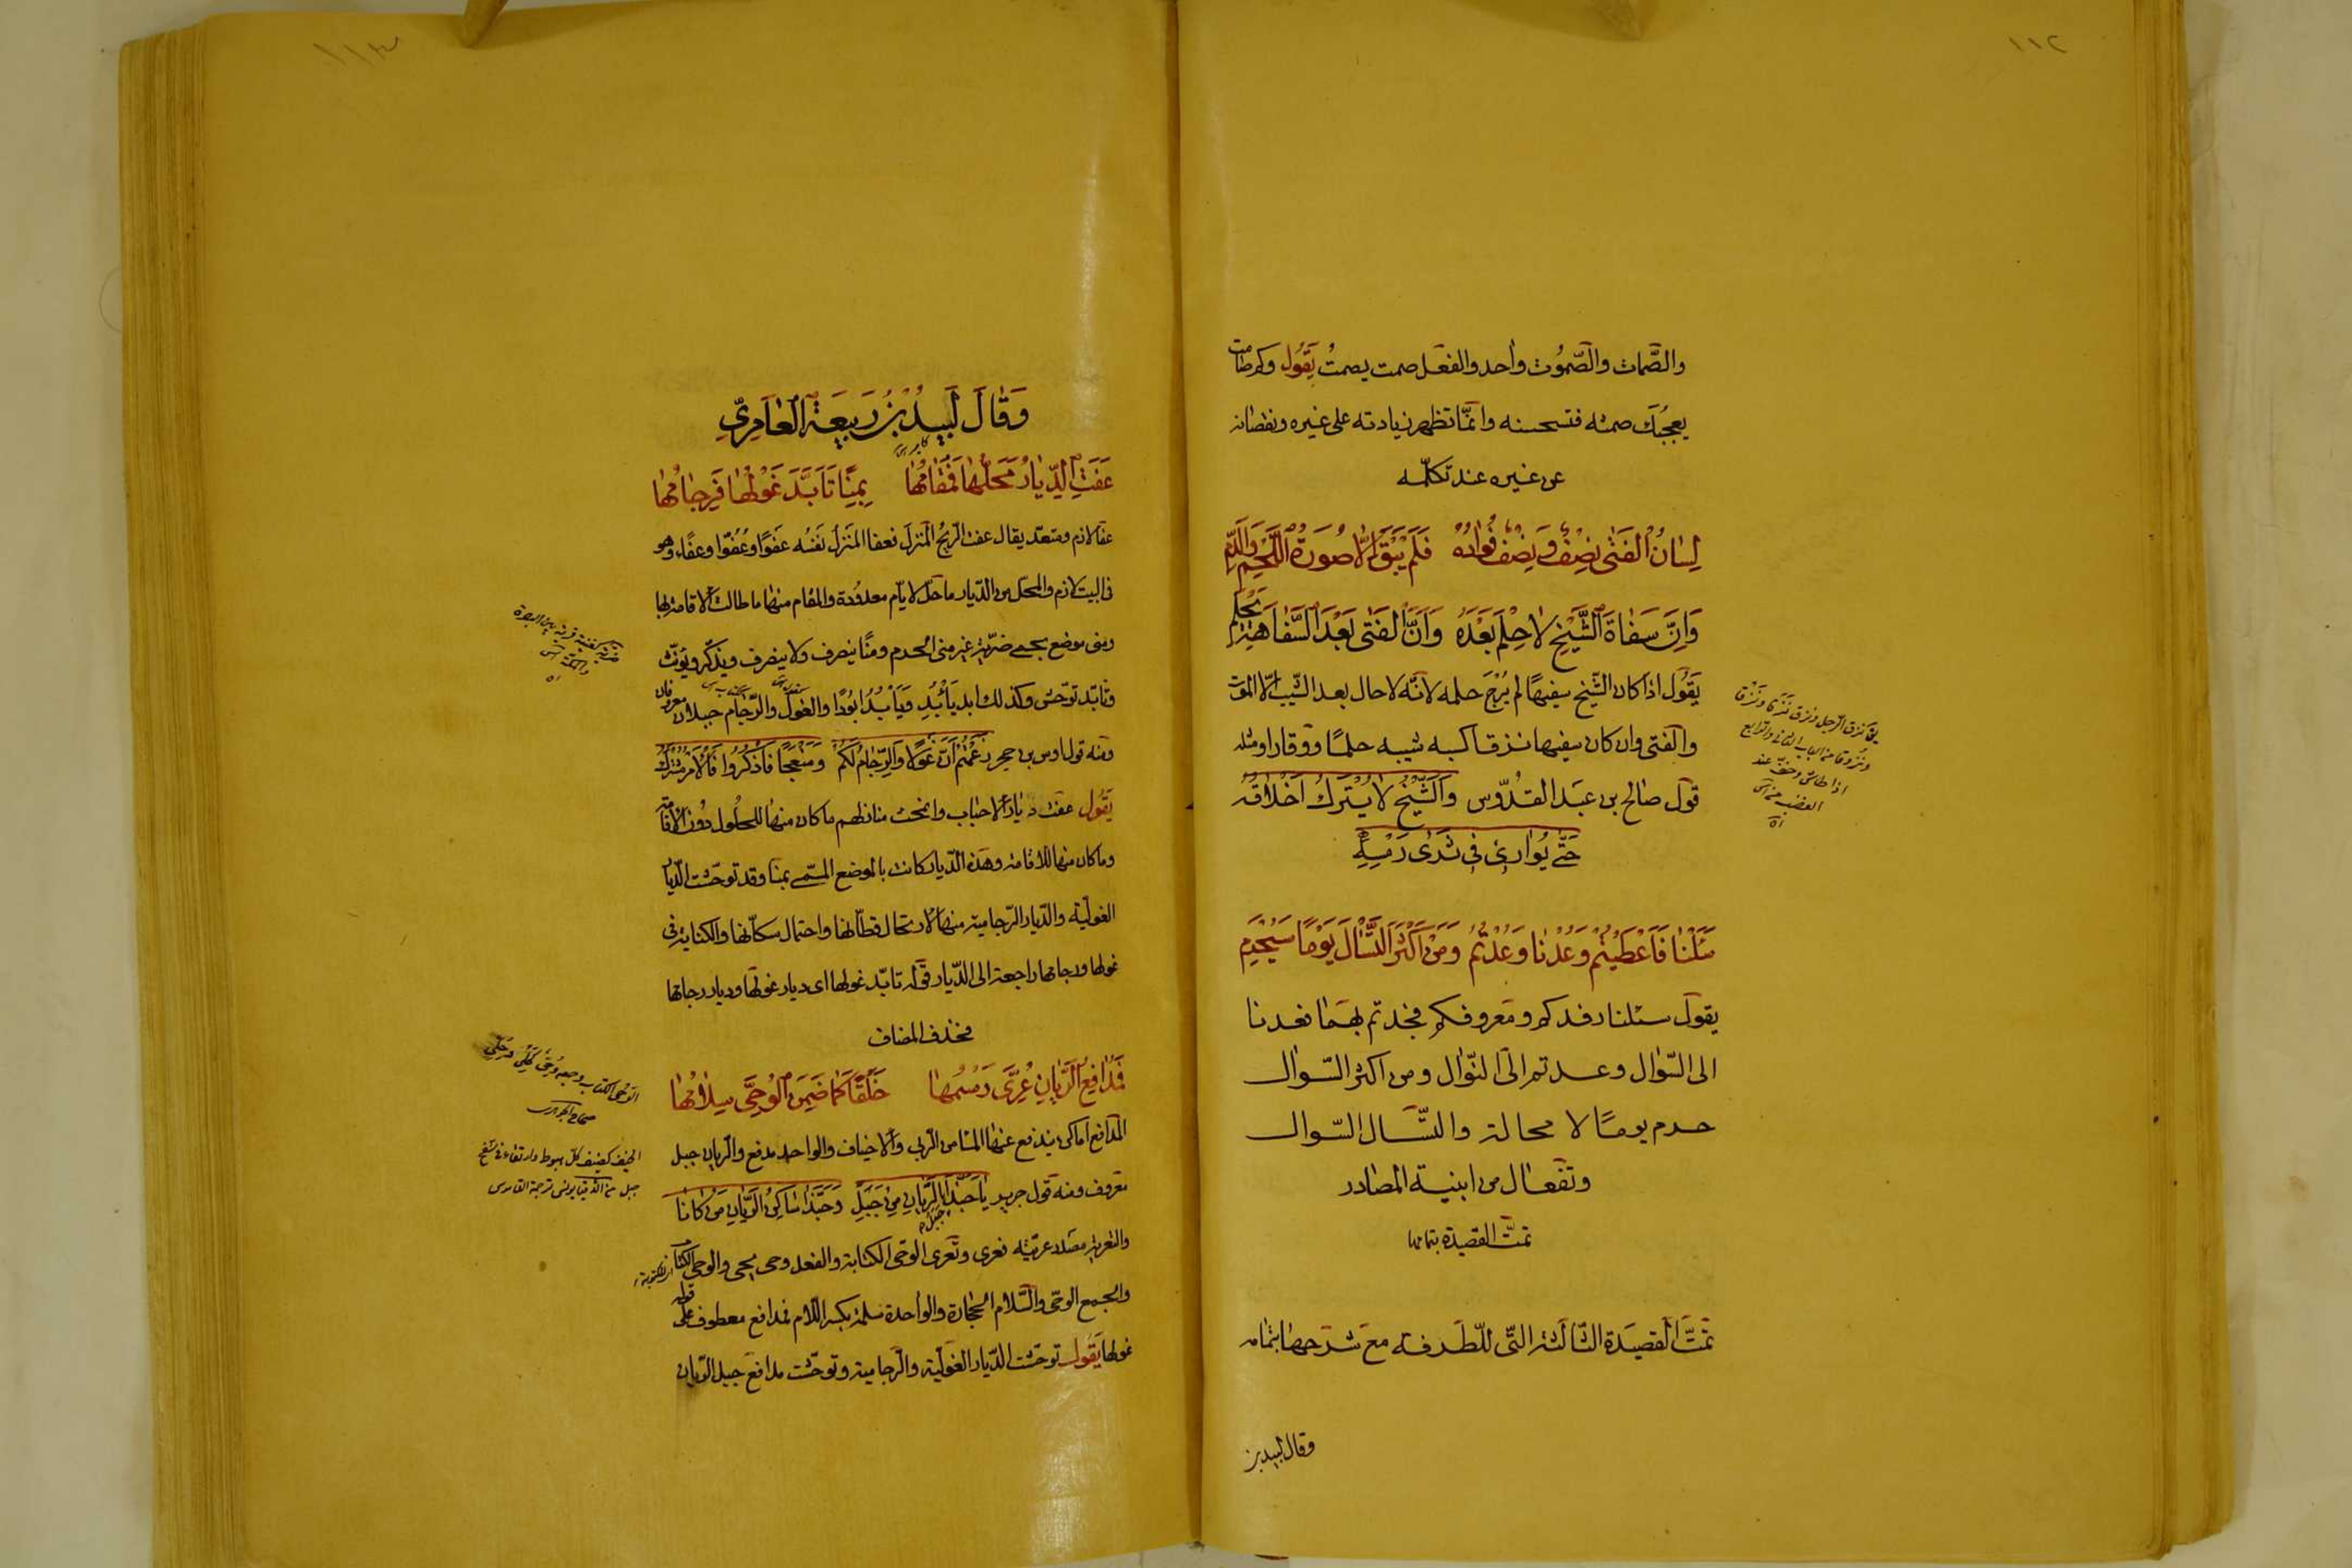 ١١٢
والصَّمات والصّموُت واحد والفعل صمت يصمتُ يَقُول وكم صامت
يعجبُكَ صمته فتستحسنه وانّما تظهر زيادته على غيره ونقصانه
عن غيره عند تكلّمه
لِسَانُ الفَتٰى نِصْفٌ وَنِصْفٌ فُؤادُهُ فَلَمْ يَبْقَ اِلّا صُورَةُ اللَّحْمِ وَالدَّمِ
وَاِنَّ سَفَاهَ الشَّيْخِ لاٰ حِلْمَ بَعْدَهُ وَاَنَّ الفَتٰى بَعْدَ السَّفَاهَةِ يَحْلُمِ
يَقُول اذا كان الشّيخ سفيهًا لم يُرْجَ حلمه لانّه لا حال بعد الشّيب الّا الموت
والفتى وان كان سفيها نزقا اكسبه شيبه حلمًا ووقارا ومثله
قول صالح بن عبد القدّوس وَالشَّيْخُ لاٰ يُتْرَكُ اَخْلاٰقُهُ
حَتّٰى يُوٰارىٰ فِى ثَرىٰ رَمْسِهِ
يق نزق الرجل ونزق نزقا ونزق
ونزوقا من الباب الثانى والرابع
اذا طاش وخفّ عند
الغضب
سَئَلْنٰا فَاَعْطَيْتُمْ وَعُدْنٰا وَعُدْتُمُ وَمَنْ اَكْثَرَ التَّسْاٰلَ يَوْمًا سَيُحْرَمِ
يقول سئلنا رفدكم ومعروفكم فجدتم بهما فعدنا
الى السّؤال وعدتم الى النّوال ومن اكثر السّوال
حرم يومًا لا محالة والتّسْآل السّوال
وتفعال من ابنية المصادر
تمتّ القصيدة بتمامها
تمتَّ القصيدة الثالثة التّى للطّرفة مع شرحها بتمامه
وقال لبيد بن
١١٣
وَقٰالَ لَبيدُ بْنُ رَبيعَةَ العٰامِرِىِّ
عَفَتِ الدِّيٰارُ مَحَلُّهٰا فَمُقٰامُهٰا بِمِنًى تَأَبَّدَ غَوْلُهٰا فَرِجٰامُهٰا
عفا لازم ومتعدّ يقال عفت الريح المنزل فعفا المنزل نفسُه عفوًا وعُفُوّا وعفاء وهو
فى البيت لازم والمحل من الدّيار ما حلّ لايّام معدودة والمقام منها ما طالت الاقامة بها
ومنى موضع بحمى ضريّة غير منى الحرم ومنًا ينصرف ولا ينصرف ويذكّر ويؤنّث
وتأبّد توحّش وكذلك ابد يأبُد وَيَأبِدُ ابودًا والغول والرّجام جبلان معروفان
ومنه قول اوس بن حجر زَعَمْتُمْ اَنَّ غَوْلًا وَالرِّجٰامَ لَكُمْ وَمَنْعِجًا فَاذْكُرُوا فَالْاَمْرُ مُشْتَرَكُ
يَقُول عفت ديار الاحباب وانمحت منازلهم ما كان منها للحلُول دُون الاقامة
وما كان منها للاقامة وهذه الدّيار كانت بالموضع المسّمى بمنا وقد توحّشت الدّيار
الغوليّة والدّيار الرّجاميّة منها لارتحال قطّانها واحتمال سكّانها والكناية فى
غولها ورجامها راجعة الى الدّيار قوله تابّد غولها اى ديار غولها وديار رجامها
فحذف المضاف
ضريّة كغنية قرية بين البصرة
ومكة
فَمَدٰافِعُ الرَّيّٰانِ عُرِّىَ رَسْمُهٰا خَلَقًا كَمٰا ضَمِنَ الْوُحِىَّ سِلاٰمُهٰا
المدافع اماكن يندفع عنها الماء من الربى والاخياف والواحد مدفع والريان جبل
معروف ومنه قول جرير يٰا حَبَّذٰا جَبَلُ الرَّيّٰانِ مِنْ جَبَلٍ وَحَبَّذٰا سٰاكِنُ الرَّيّٰانِ مَنْ كٰانٰا
والتعرية مصدر عريته فعرى وتعرى الوحى الكتابة والفعل وحى يحى والوحى الكتاب
والجمع الوحىّ والسّلام الحجارة والواحدة سلمة بكسر اللّام فمدافع معطوف على قوله
غولها يَقُول توحّشت الدّيار الغوليّة والرّجامية وتوحّشت مدافع جبل الرّيان
الوحى الكتاب وجمعه وحى كحلى وحلى
صحاح الجوهرى
الخيف كضيف كل هبوط وارتقاء فى سفح
جبل ترجمة القاموس